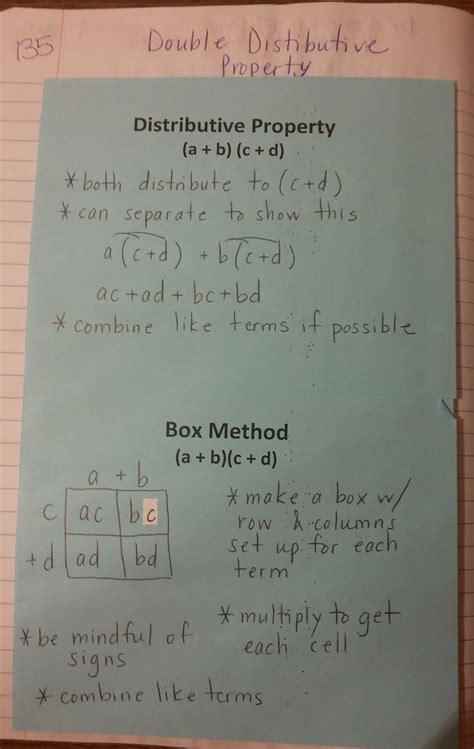 135
Double Distibutive
Property
Distributive Property
(a + b) (c + d)
* both distribute to (c+d)
* can separate to show this
a(c+d) + b(c+d)
ac + ad + bc + bd
* combine like terms if possible
Box Method
(a + b)(c + d)
a + b
c ac bc
+ d ad bd
* make a box w/
row & columns
set up for each
term
* multiply to get
each cell
* be mindful of
signs
* combine like terms